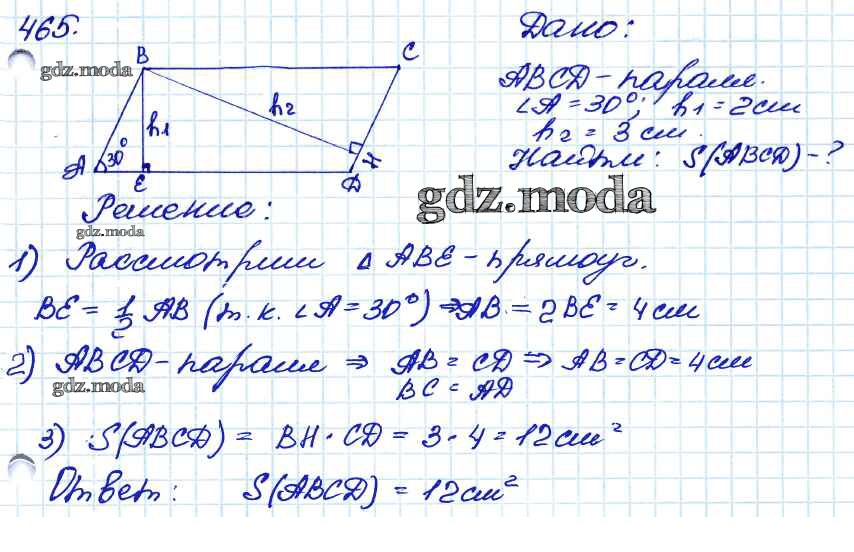 465.
Дано:
B
C
gdz.moda
ABCD - паралл.
h2
∠A = 30°; h1 = 2 см
h1
h2 = 3 см.
A
30°
H
Найти: S(ABCD) - ?
E
D
gdz.moda
Решение:
gdz.moda
1) Рассмотрим ΔABE - прямоуг.
BE = 1/2 AB (т.к. ∠A = 30°) ⇒ AB = 2BE = 4 см
2) ABCD - паралл ⇒ AB = CD ⇒ AB = CD = 4 см
gdz.moda
BC = AD
3) S(ABCD) = BH · CD = 3 · 4 = 12 см²
Ответ: S(ABCD) = 12 см²